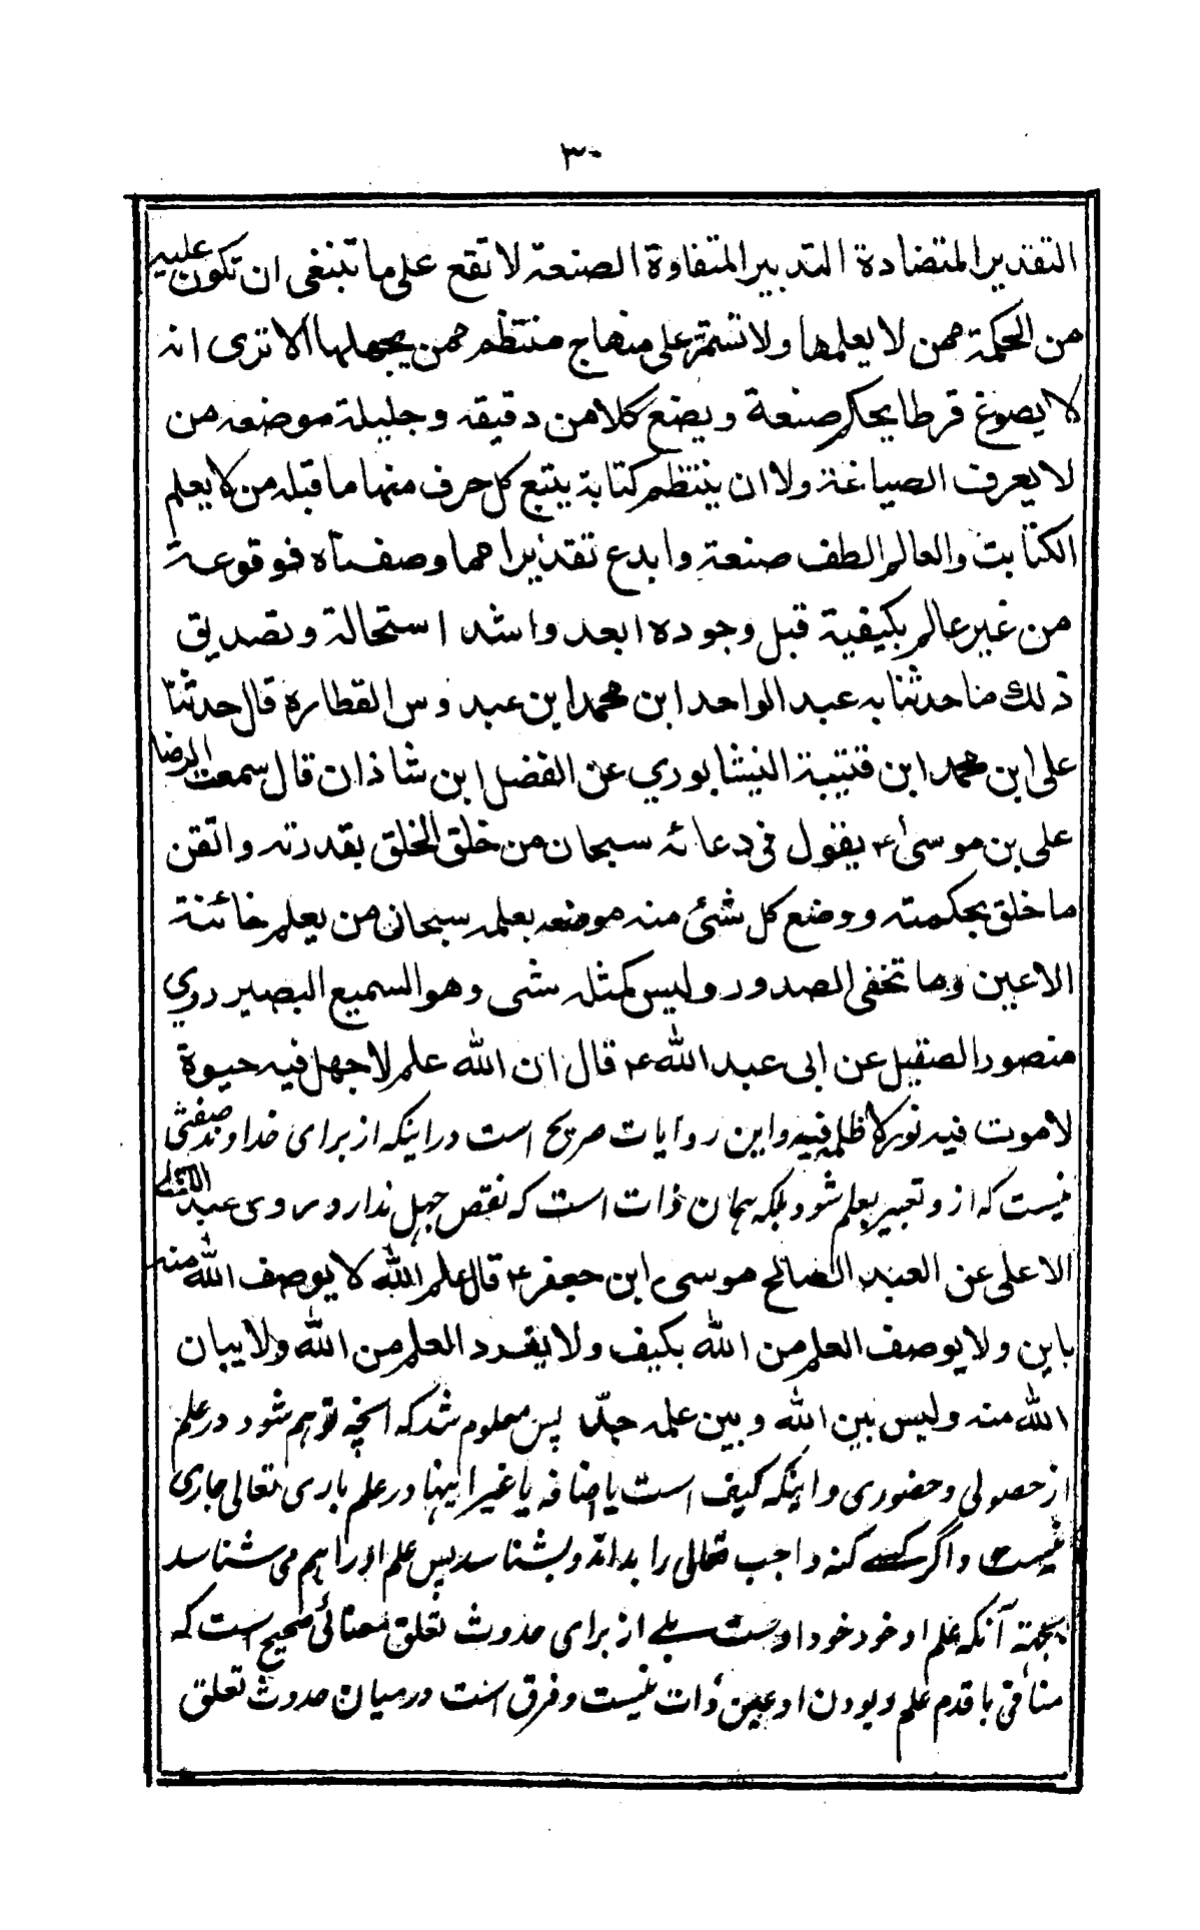 ٣٠
التقدير المتضادة التدبير المتفاوة الصنعة لا تقع على ما تنبغى ان تكون عليه
من الحكمة ممن لا يعلمها ولا تستمر على منهاج منتظم ممن يجهلها الا ترى انه
لا يصوغ قرطا يحكم صنعة ويضع كلا من دقيقه وجليلة موضعه من
لا يعرف الصياغة ولا ان ينتظم كتابة يتبع كل حرف منها ما قبله من لا يعلم
الكتابت والعالم الطف صنعة وابدع تقديرا مما وصفناه فوقوعة
من غير عالم بكيفية قبل وجوده ابعد واشد استحالة وتصديق
ذلك ما حدثنا به عبد الواحد ابن محمد ابن عبدوس القطاره قال حدثنا
على ابن محمد ابن قتيبة النيشابوري عن الفضل ابن شاذان قال سمعت الرضا
على بن موسىٰ ع يقول فى دعائه سبحان من خلق الخلق بقدرته واتقن
ما خلق بحكمته ووضع كل شئ منه موضعه بعلمه سبحان من يعلم خائنة
الاعين وما تخفى الصدور وليس كمثله شى وهو السميع البصير روي
منصور الصقيل عن ابى عبد الله ع قال ان الله علم لا جهل فيه حيوة
لا موت فيه نور لا ظلمه فيه واين روايات صريح است در اينكه از براى خداوند صفتى
نيست كه از و تعبير بعلم شود بلكه همان ذات است كه نقص جهل ندارد وروى عبد
الاعلى عن العبد الصالح موسى ابن جعفر ع قال علم الله لا يوصف الله منه
باين ولا يوصف العلم من الله بكيف ولا يفرد العلم من الله ولا يبان
الله منه وليس بين الله وبين علمه حدّ پس معلوم شد كه انچه توهم شود در علم
از حصولى و حضورى و اينكه كيف است يا اضافه يا غير اينها در علم بارى تعالى جارى
نيست و اگر كسى كنه واجب تعالى را بداند و بشناسد پس علم او را هم مى شناسد
بجهته آنكه علم او خود خود اوست بلے از براى حدوث تعلق معنائى صحيح است كه
منافى با قدم علم و بودن او عين ذات نيست و فرق است درميان حدوث تعلق